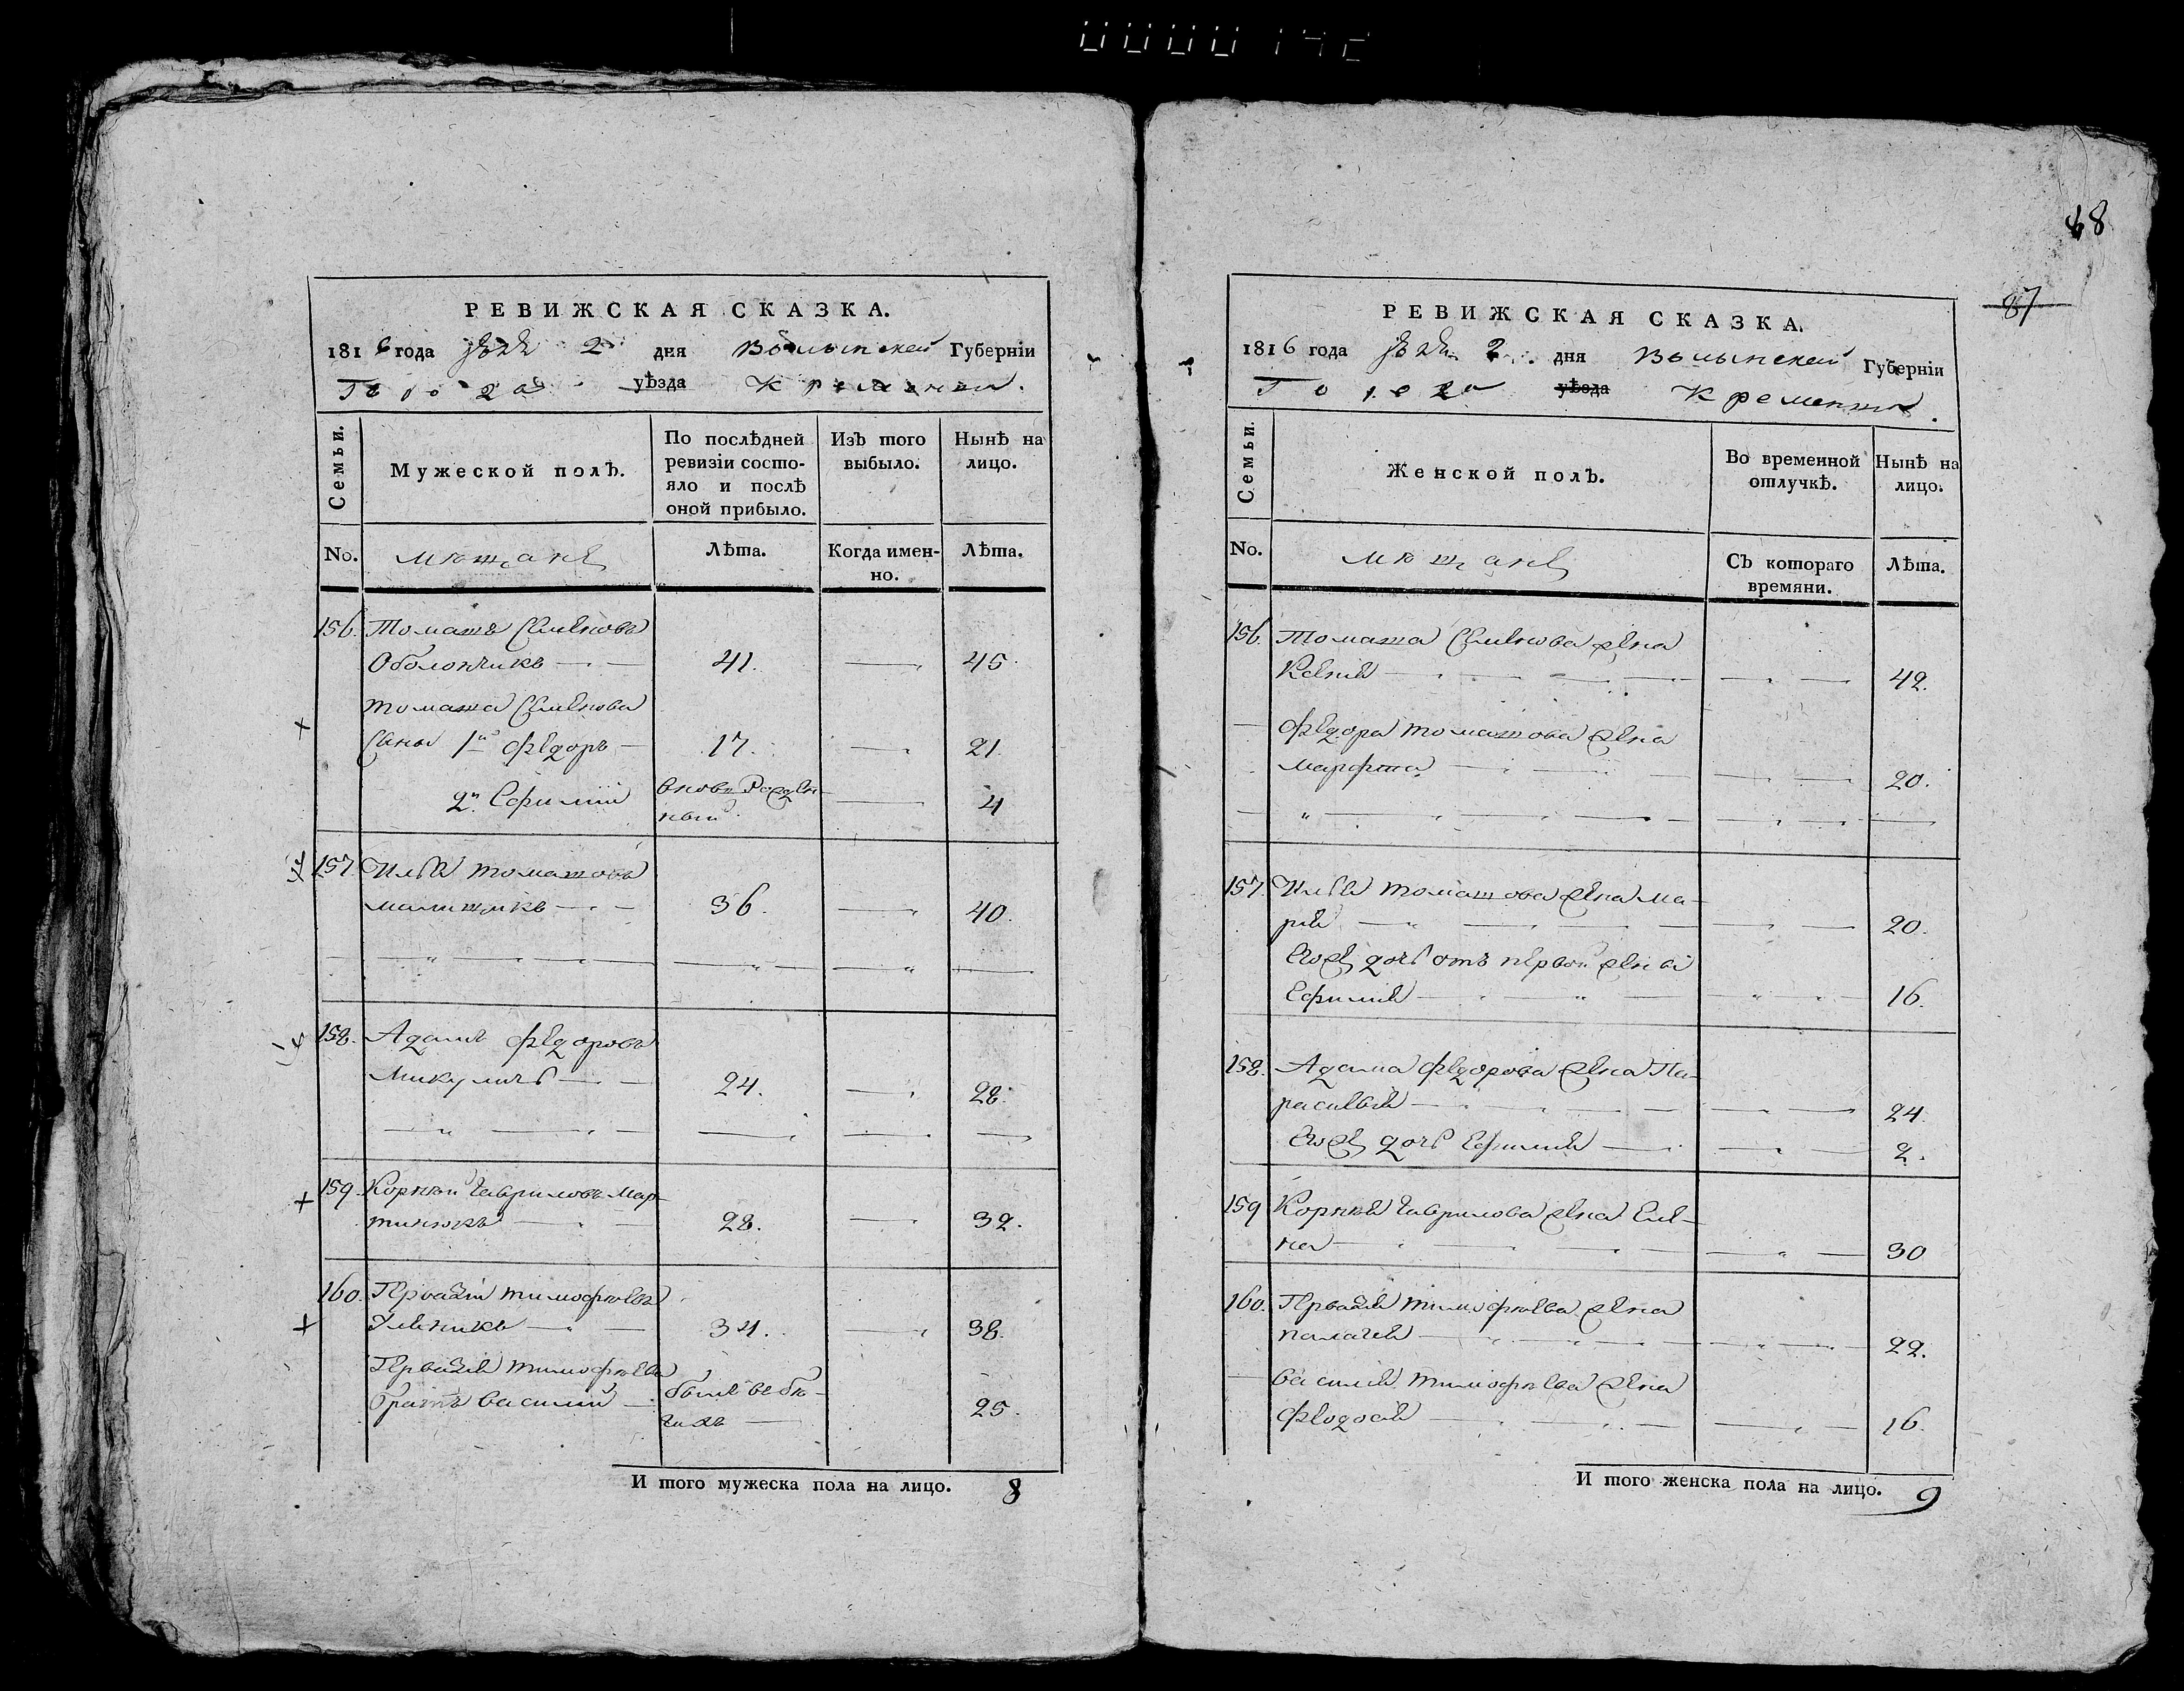 68
87
РЕВИЖСКАЯ СКАЗКА.
1816 года 2 дня Волынской Губерніи
Города уѣзда Кременца.
Семьи.
Мужеской полъ.
По послѣдней ревизіи состо-
яло и послѣ
оной прибыло.
Изъ того
выбыло.
Нынѣ на
лицо.
No.
мѣщане
Лѣта.
Когда имен-
но.
Лѣта.
156. Томашъ Семеновъ
Оболончикъ — 41. — 45.
Томаша Семенова
Сыны 1й Федоръ — 17. — 21.
2й Ефимій вновь Рожден-
ный — 4
157. Илья Томашовъ
малишикъ — 36. — 40.
158. Адамъ Федоровъ
Микуличь — 24. — 28.
159. Корней Гавриловъ Мар-
тинюкъ — 28. — 32.
160. Гервазій Тимофѣевъ
Улѣникъ — 34. — 38.
Гервазія Тимофѣева
братъ Василій — былъ въ бѣ-
гахъ — 25.
И того мужеска пола на лицо. 8
РЕВИЖСКАЯ СКАЗКА.
1816 года 2 дня Волынской Губерніи
Города уѣзда Кременца.
Семьи.
Женской полъ.
Во временной
отлучкѣ.
Нынѣ на
лицо.
No.
мѣщане
Съ котораго
времяни.
Лѣта.
156. Томаша Семенова жена
Ксенія — 42.
Федора Томашова жена
марфа — 20.
157. Ильи Томашова жена Ма-
рія — 20.
Его же дочь отъ первой жены
Ефимія — 16.
158. Адама Федорова жена Па-
раскевія — 24.
Его же дочь Ефимія — 2.
159 Корнея Гаврилова жена Еле-
на — 30
160. Гервазія Тимофѣева жена
палагея — 22.
Василія Тимофѣева жена
Феодосія — 16.
И того женска пола на лицо. 9